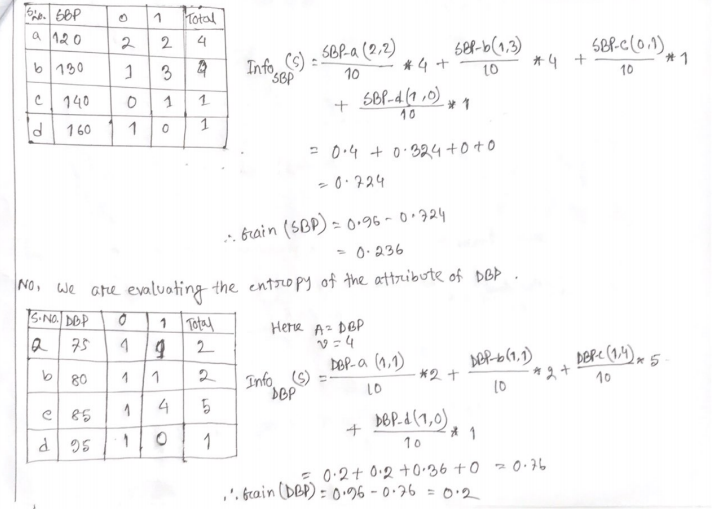 S.No. SBP 0 1 Total
a 120 2 2 4
b 130 1 3 4
c 140 0 1 1
d 160 1 0 1
Info SBP (S) = SBP-a(2,2)/10 *4 + SBP-b(1,3)/10 *4 + SBP-c(0,1)/10 *1
+ SBP-d(1,0)/10 *1
= 0.4 + 0.324+0+0
= 0.724
∴ Gain (SBP) = 0.96 - 0.724
= 0.236
No, we are evaluating the entropy of the attribute of DBP.
S.No. DBP 0 1 Total
a 75 1 1 2
b 80 1 1 2
c 85 1 4 5
d 95 1 0 1
Here A = DBP
v = 4
Info DBP (S) = DBP-a (1,1)/10 *2 + DBP-b(1,1)/10 *2 + DBP-c(1,4)/10 * 5
+ DBP-d(1,0)/10 * 1
= 0.2+0.2+0.36+0 = 0.76
∴ Gain (DBP) = 0.96 - 0.76 = 0.2